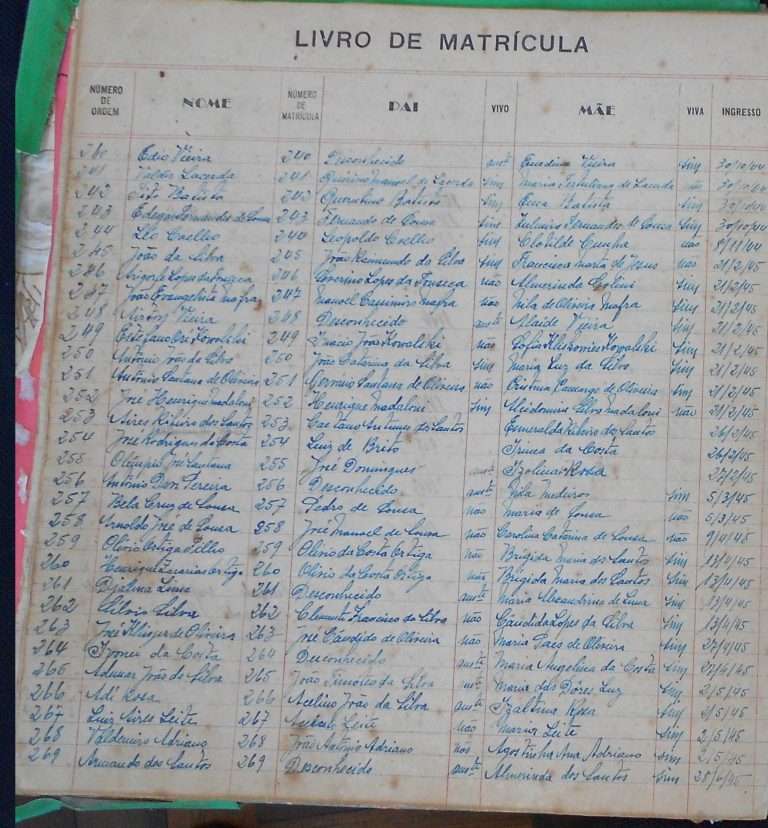 LIVRO DE MATRÍCULA
NÚMERO DE ORDEM NOME NÚMERO DE MATRÍCULA PAI VIVO MÃE VIVA INGRESSO
240 Edio Vieira 240 Desconhecido Vieira sim 30/10/44
241 Valdir Lacerda 241 Manoel de Lacerda sim Maria de Lacerda não 30/10/44
242 Tito Batista 242 Batista sim Batista sim 30/10/44
243 Edegar Fernandes de Sousa 243 Fernando de Sousa sim Fernandes de Sousa sim 30/10/44
244 Léo Coelho 244 Leopoldo Coelho sim Clotilde não 8/11/44
245 João da Silva 245 João Raimundo da Silva sim Francisca Maria de Jesus não 21/2/45
246 Lopes da Fonseca 246 Severino Lopes da Fonseca não Almerinda sim 21/2/45
247 João Evangelista Mafra 247 Manoel Casimiro Mafra não Nila de Oliveira Mafra sim 21/2/45
248 Vieira 248 Desconhecido Alaide Vieira sim 21/2/45
249 Kowalski 249 Inacio João Kowalski não Sofia Kowalski sim 21/2/45
250 Antônio João da Silva 250 João Catarina da Silva sim Maria Luz da Silva sim 21/2/45
251 Antônio Santana de Oliveira 251 Gervasio Santana de Oliveira não Cristina Camargo de Oliveira sim 21/2/45
252 José Henrique Madaloni 252 Henrique Madaloni sim Silva Madaloni não 21/2/45
253 Aires Ribeiro dos Santos 253 Caetano Antunes dos Santos Esmeralda Ribeiro dos Santos 26/2/45
254 José Rodrigues da Costa 254 Luiz de Brito Irinea da Costa 26/2/45
255 Olímpio José Santana 255 José Domingues Rosa 27/2/45
256 Antônio Pereira 256 Desconhecido Nila Medeiros sim 5/3/45
257 Bela Cruz de Sousa 257 Pedro de Sousa não Maria de Sousa não 5/3/45
258 Arnoldo José de Sousa 258 José Manoel de Sousa não Carolina Catarina de Sousa não 9/4/45
259 Olivio Ortiga Filho 259 Olivio da Costa Ortiga não Brigida Maria dos Santos sim 13/4/45
260 Henrique Zacarias Ortiga 260 Olivio da Costa Ortiga não Brigida Maria dos Santos sim 13/4/45
261 Djalma Lima 261 Desconhecido Maria Alexandrina de Lima sim 13/4/45
262 Silvio Silva 262 Clemente Francisco da Silva não Candida Lopes da Silva sim 13/4/45
263 José de Oliveira 263 José Candido de Oliveira não Maria Paes de Oliveira sim 27/4/45
264 Ivonei da Costa 264 Desconhecido Maria Angelina da Costa sim 27/4/45
265 Ademar João da Silva 265 João Timoteo da Silva Maria das Dôres Luz sim 2/5/45
266 Adi Rosa 266 Acelino João da Silva Izaltina Rosa sim 2/5/45
267 Luiz Aires Leite 267 Leite não Maria Leite sim 2/5/45
268 Valdemiro Adriano 268 João Antônio Adriano não Agostinha Ana Adriano sim 2/5/45
269 Armando dos Santos 269 Desconhecido Almerinda dos Santos sim 28/6/45